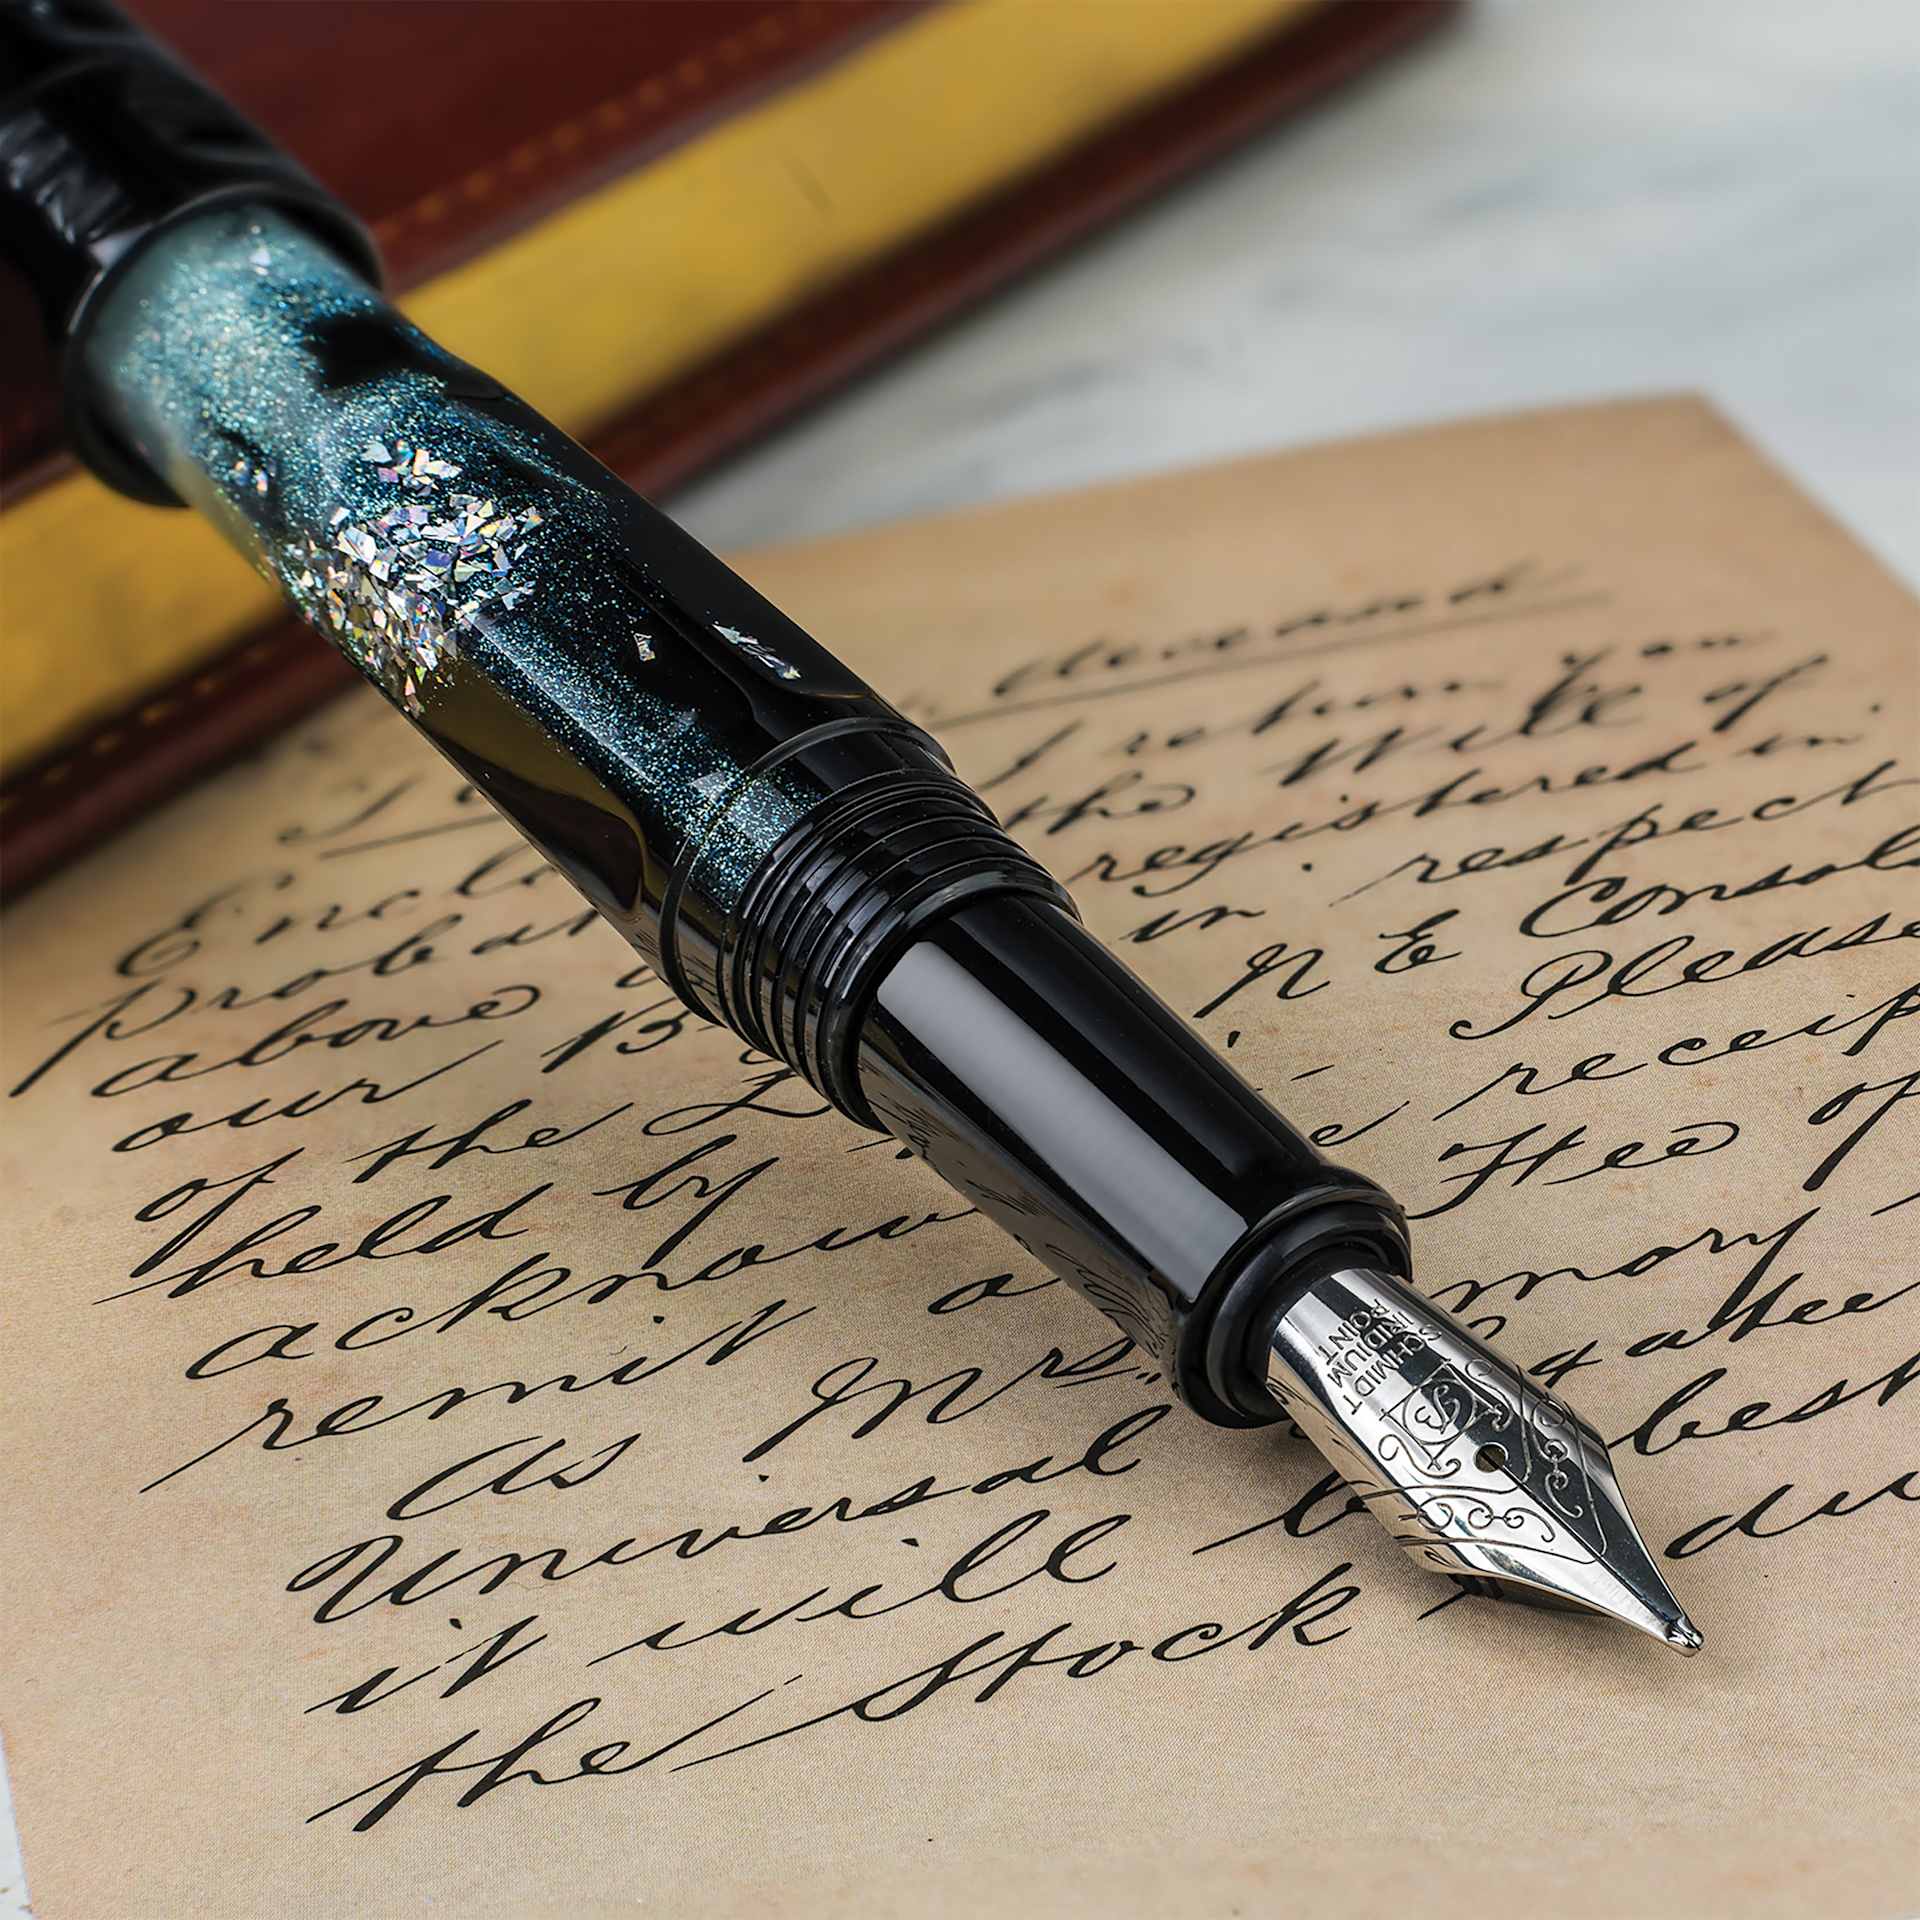 I return you
Enclo the Will of
probat registered in
above in respect
our B N E Consols
of the L Please
held by receip
acknow Fee of
remit a mory
As Mrs. & atee
Universal best
it will b du
the Stock
SCHMIDT
IRIDIUM
POINT